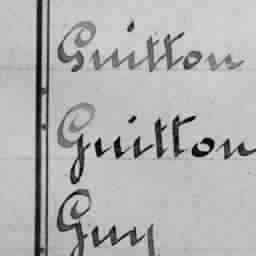 Guitton
Guitton
Guy